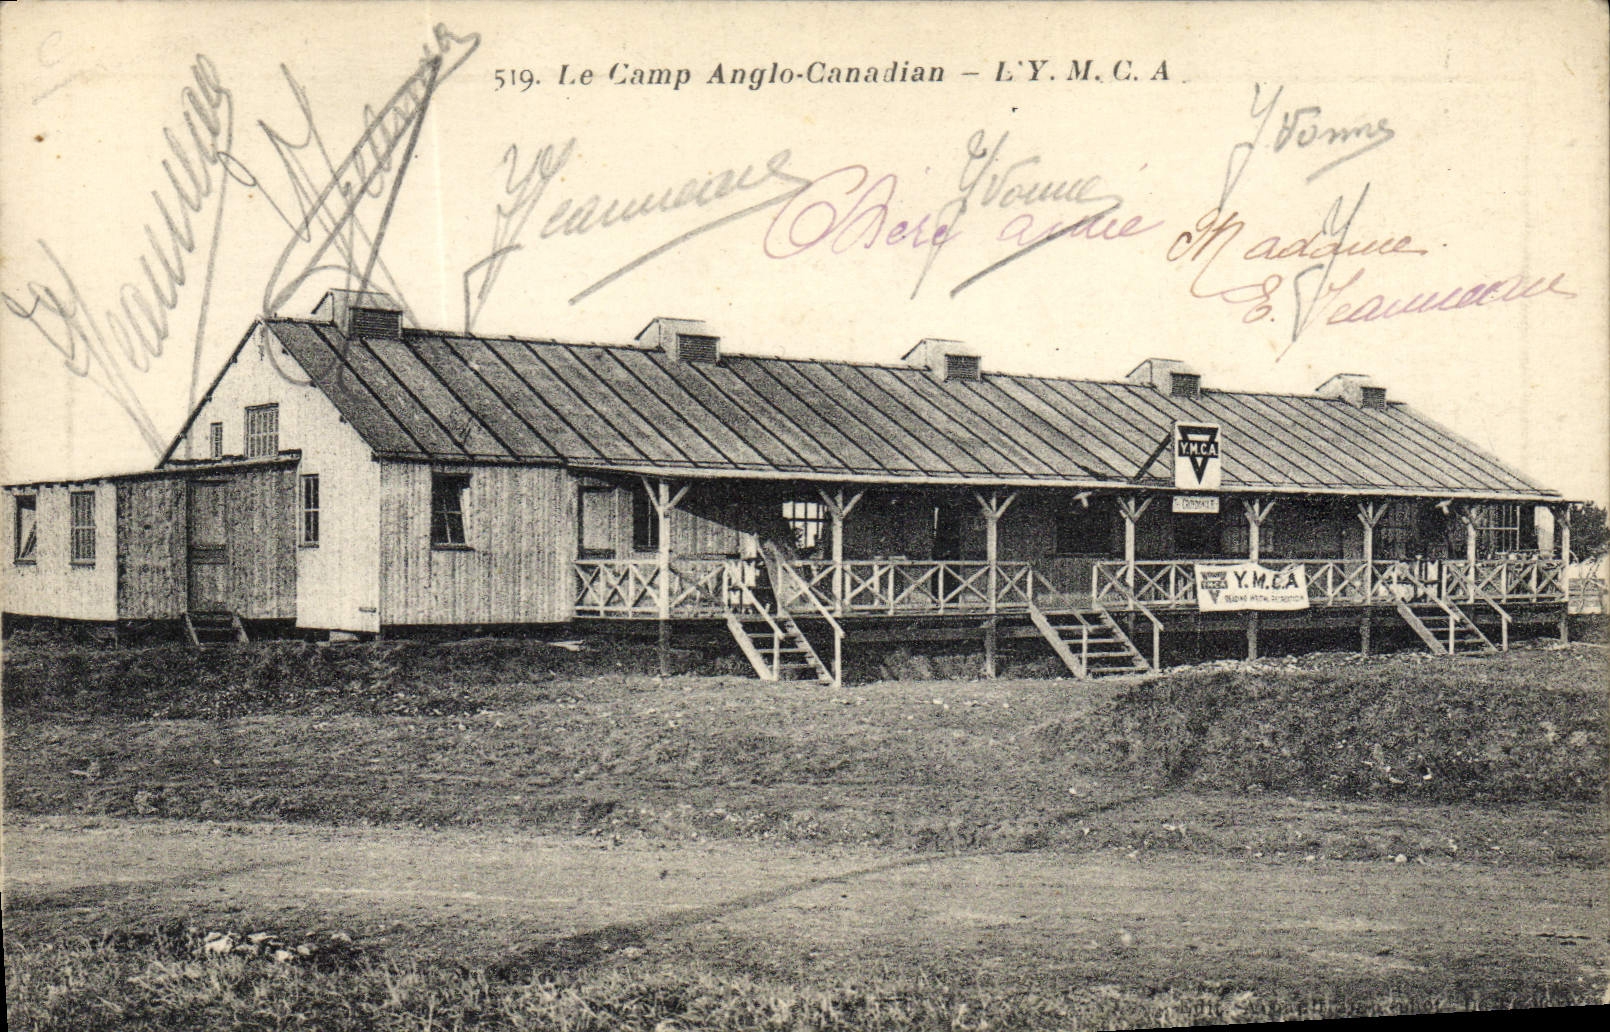 519. Le Camp Anglo-Canadian – L'Y. M. C. A
Jeanneau
Jeanneau
Jeanneau
Yvonne
Yvonne
Chère amie
Madame
E. Jeanneau
Y.M.C.A
Y.M.C.A